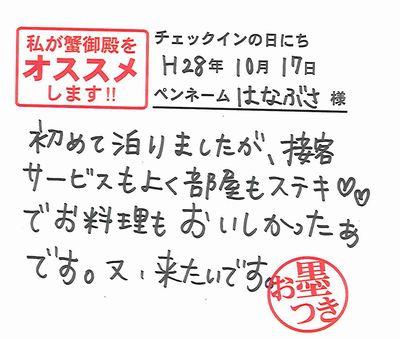 私が蟹御殿を
オススメ
します!!
チェックインの日にち
H28年 10月 17日
ペンネーム はなぶさ 様
初めて泊りましたが、接客
サービスもよく部屋もステキ♡♡
でお料理もおいしかったぁ
です。又、来たいです。
お墨つき